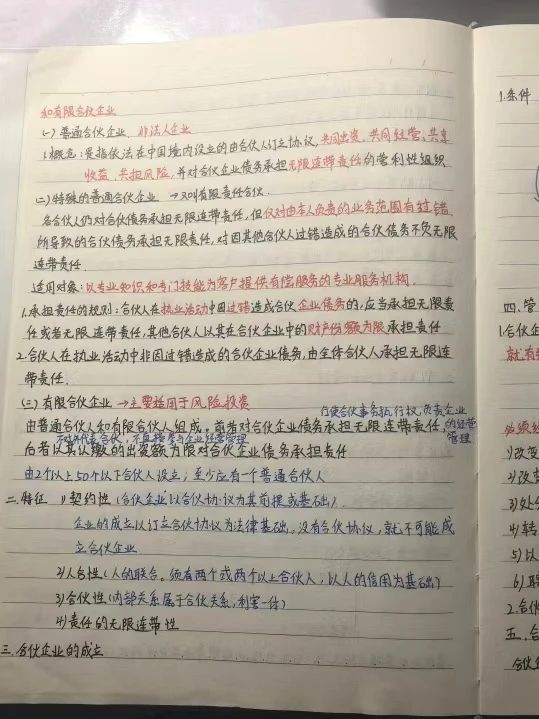 和有限合伙企业
(一) 普通合伙企业 非法人企业
1.概念:是指依法在中国境内设立的由合伙人订立协议,共同出资,共同经营,共享
收益,共担风险,并对合伙企业债务承担无限连带责任的营利性组织
(二)特殊的普通合伙企业 →又叫有限责任合伙.
各合伙人仍对合伙债务承担无限连带责任,但仅对由本人负责的业务范围有过错
所导致的合伙债务承担无限责任,对因其他合伙人过错造成的合伙债务不负无限
连带责任.
适用对象:以专业知识和专门技能为客户提供有偿服务的专业服务机构.
1.承担责任的规则:合伙人在执业活动中因过错造成合伙企业债务的,应当承担无限责
任或者无限连带责任,其他合伙人以其在合伙企业中的财产份额为限承担责任
2.合伙人在执业活动中非因过错造成的合伙企业债务,由全体合伙人承担无限连
带责任.
(三) 有限合伙企业 →主要适用于风险投资
行使合伙事务执行权,负责企业
的经营
管理
由普通合伙人和有限合伙人组成.前者对合伙企业债务承担无限连带责任,
不对外代表合伙,不直接参与企业经营管理
后者以其认缴的出资额为限对合伙企业债务承担责任
由2个以上50个以下合伙人设立;至少应有一个普通合伙人
二.特征 1)契约性(合伙企业以合伙协议为其前提或基础).
企业的成立以订立合伙协议为法律基础,没有合伙协议,就不可能成
立合伙企业
2)人合性(人的联合.须有两个或两个以上合伙人,以人的信用为基础)
3)合伙性(内部关系属于合伙关系,利害一体)
4)责任的无限连带性
三.合伙企业的成立
1.条件
四.管
1.合伙企
就有
必须经
1)改变
2)改变
3)处分
4)转
5)以
6)聘
2.合伙
五.合
合伙企